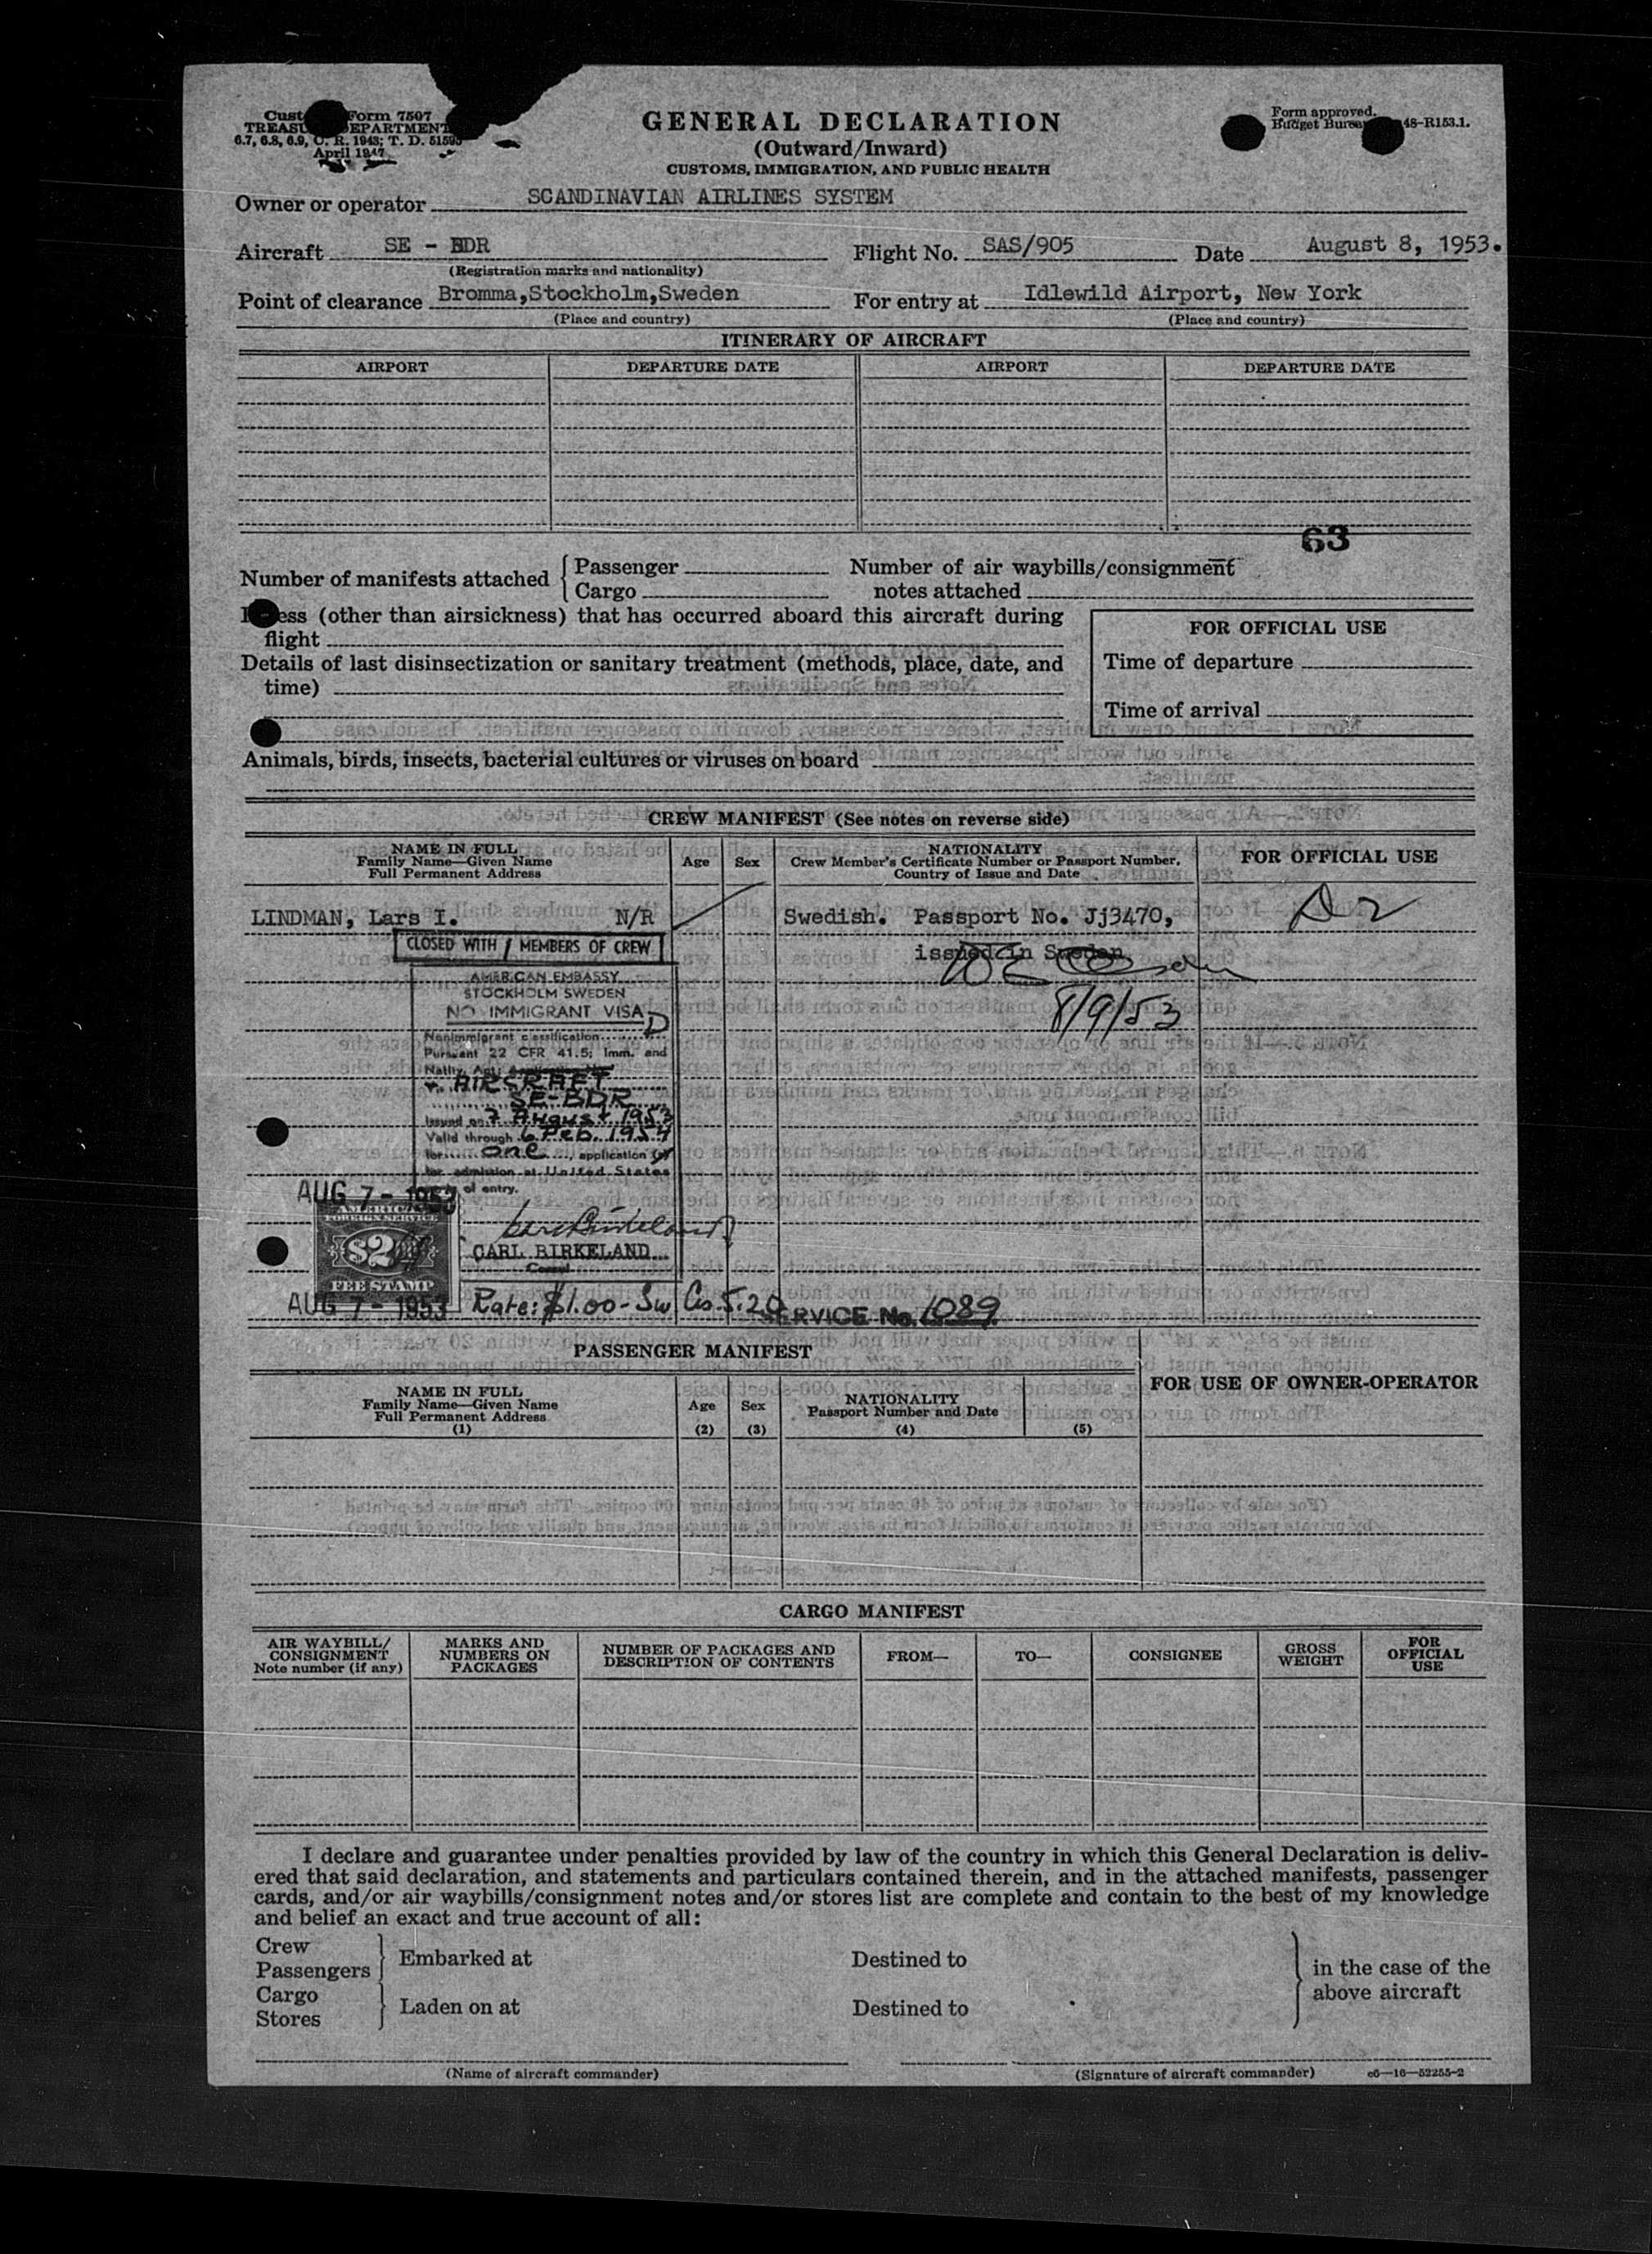 Form 7507
6.7, 6.8, 6.9, C. R. 1943; T. D. 51595
April 1947
GENERAL DECLARATION
(Outward/Inward)
CUSTOMS, IMMIGRATION, AND PUBLIC HEALTH
Form approved.
Budget Bureau 48-R153.1.
Owner or operator SCANDINAVIAN AIRLINES SYSTEM
Aircraft SE - BDR Flight No. SAS/905 Date August 8, 1953.
(Registration marks and nationality)
Point of clearance Bromma,Stockholm,Sweden For entry at Idlewild Airport, New York
(Place and country) (Place and country)
ITINERARY OF AIRCRAFT
AIRPORT DEPARTURE DATE AIRPORT DEPARTURE DATE
63
Number of manifests attached { Passenger Number of air waybills/consignment
Cargo notes attached
(other than airsickness) that has occurred aboard this aircraft during
flight
FOR OFFICIAL USE
Details of last disinsectization or sanitary treatment (methods, place, date, and
time)
Time of departure
Time of arrival
Animals, birds, insects, bacterial cultures or viruses on board
CREW MANIFEST (See notes on reverse side)
NAME IN FULL
Family Name—Given Name
Full Permanent Address
Age Sex
NATIONALITY
Crew Member's Certificate Number or Passport Number,
Country of Issue and Date
FOR OFFICIAL USE
LINDMAN, Lars I. N/R Swedish. Passport No. Jj3470,
issued in Sweden
8/9/53
CLOSED WITH 1 MEMBERS OF CREW
AMERICAN EMBASSY
STOCKHOLM SWEDEN
NO IMMIGRANT VISA
Nonimmigrant classification D
Pursuant 22 CFR 41.5; Imm. and
Natlty. Act;
AIRCRAFT
SE-BDR
Issued on 7 August 1953
Valid through 6 Feb. 1954
for one, application
for admission at United States
of entry.
AUG 7 - 1953
AMERICAN
FOREIGN SERVICE
$2
FEE STAMP
CARL BIRKELAND
Consul
AUG 7 - 1953 Rate: $1.00 - Sw Crs. 5.20
SERVICE No. 1089
PASSENGER MANIFEST
NAME IN FULL
Family Name—Given Name
Full Permanent Address
(1)
Age
(2)
Sex
(3)
NATIONALITY
Passport Number and Date
(4) (5)
FOR USE OF OWNER-OPERATOR
CARGO MANIFEST
AIR WAYBILL/
CONSIGNMENT
Note number (if any)
MARKS AND
NUMBERS ON
PACKAGES
NUMBER OF PACKAGES AND
DESCRIPTION OF CONTENTS
FROM—
TO—
CONSIGNEE
GROSS
WEIGHT
FOR
OFFICIAL
USE
I declare and guarantee under penalties provided by law of the country in which this General Declaration is deliv-
ered that said declaration, and statements and particulars contained therein, and in the attached manifests, passenger
cards, and/or air waybills/consignment notes and/or stores list are complete and contain to the best of my knowledge
and belief an exact and true account of all:
Crew
Passengers } Embarked at Destined to
Cargo
Stores } Laden on at Destined to
} in the case of the
above aircraft
(Name of aircraft commander) (Signature of aircraft commander) c6—16—52255-2